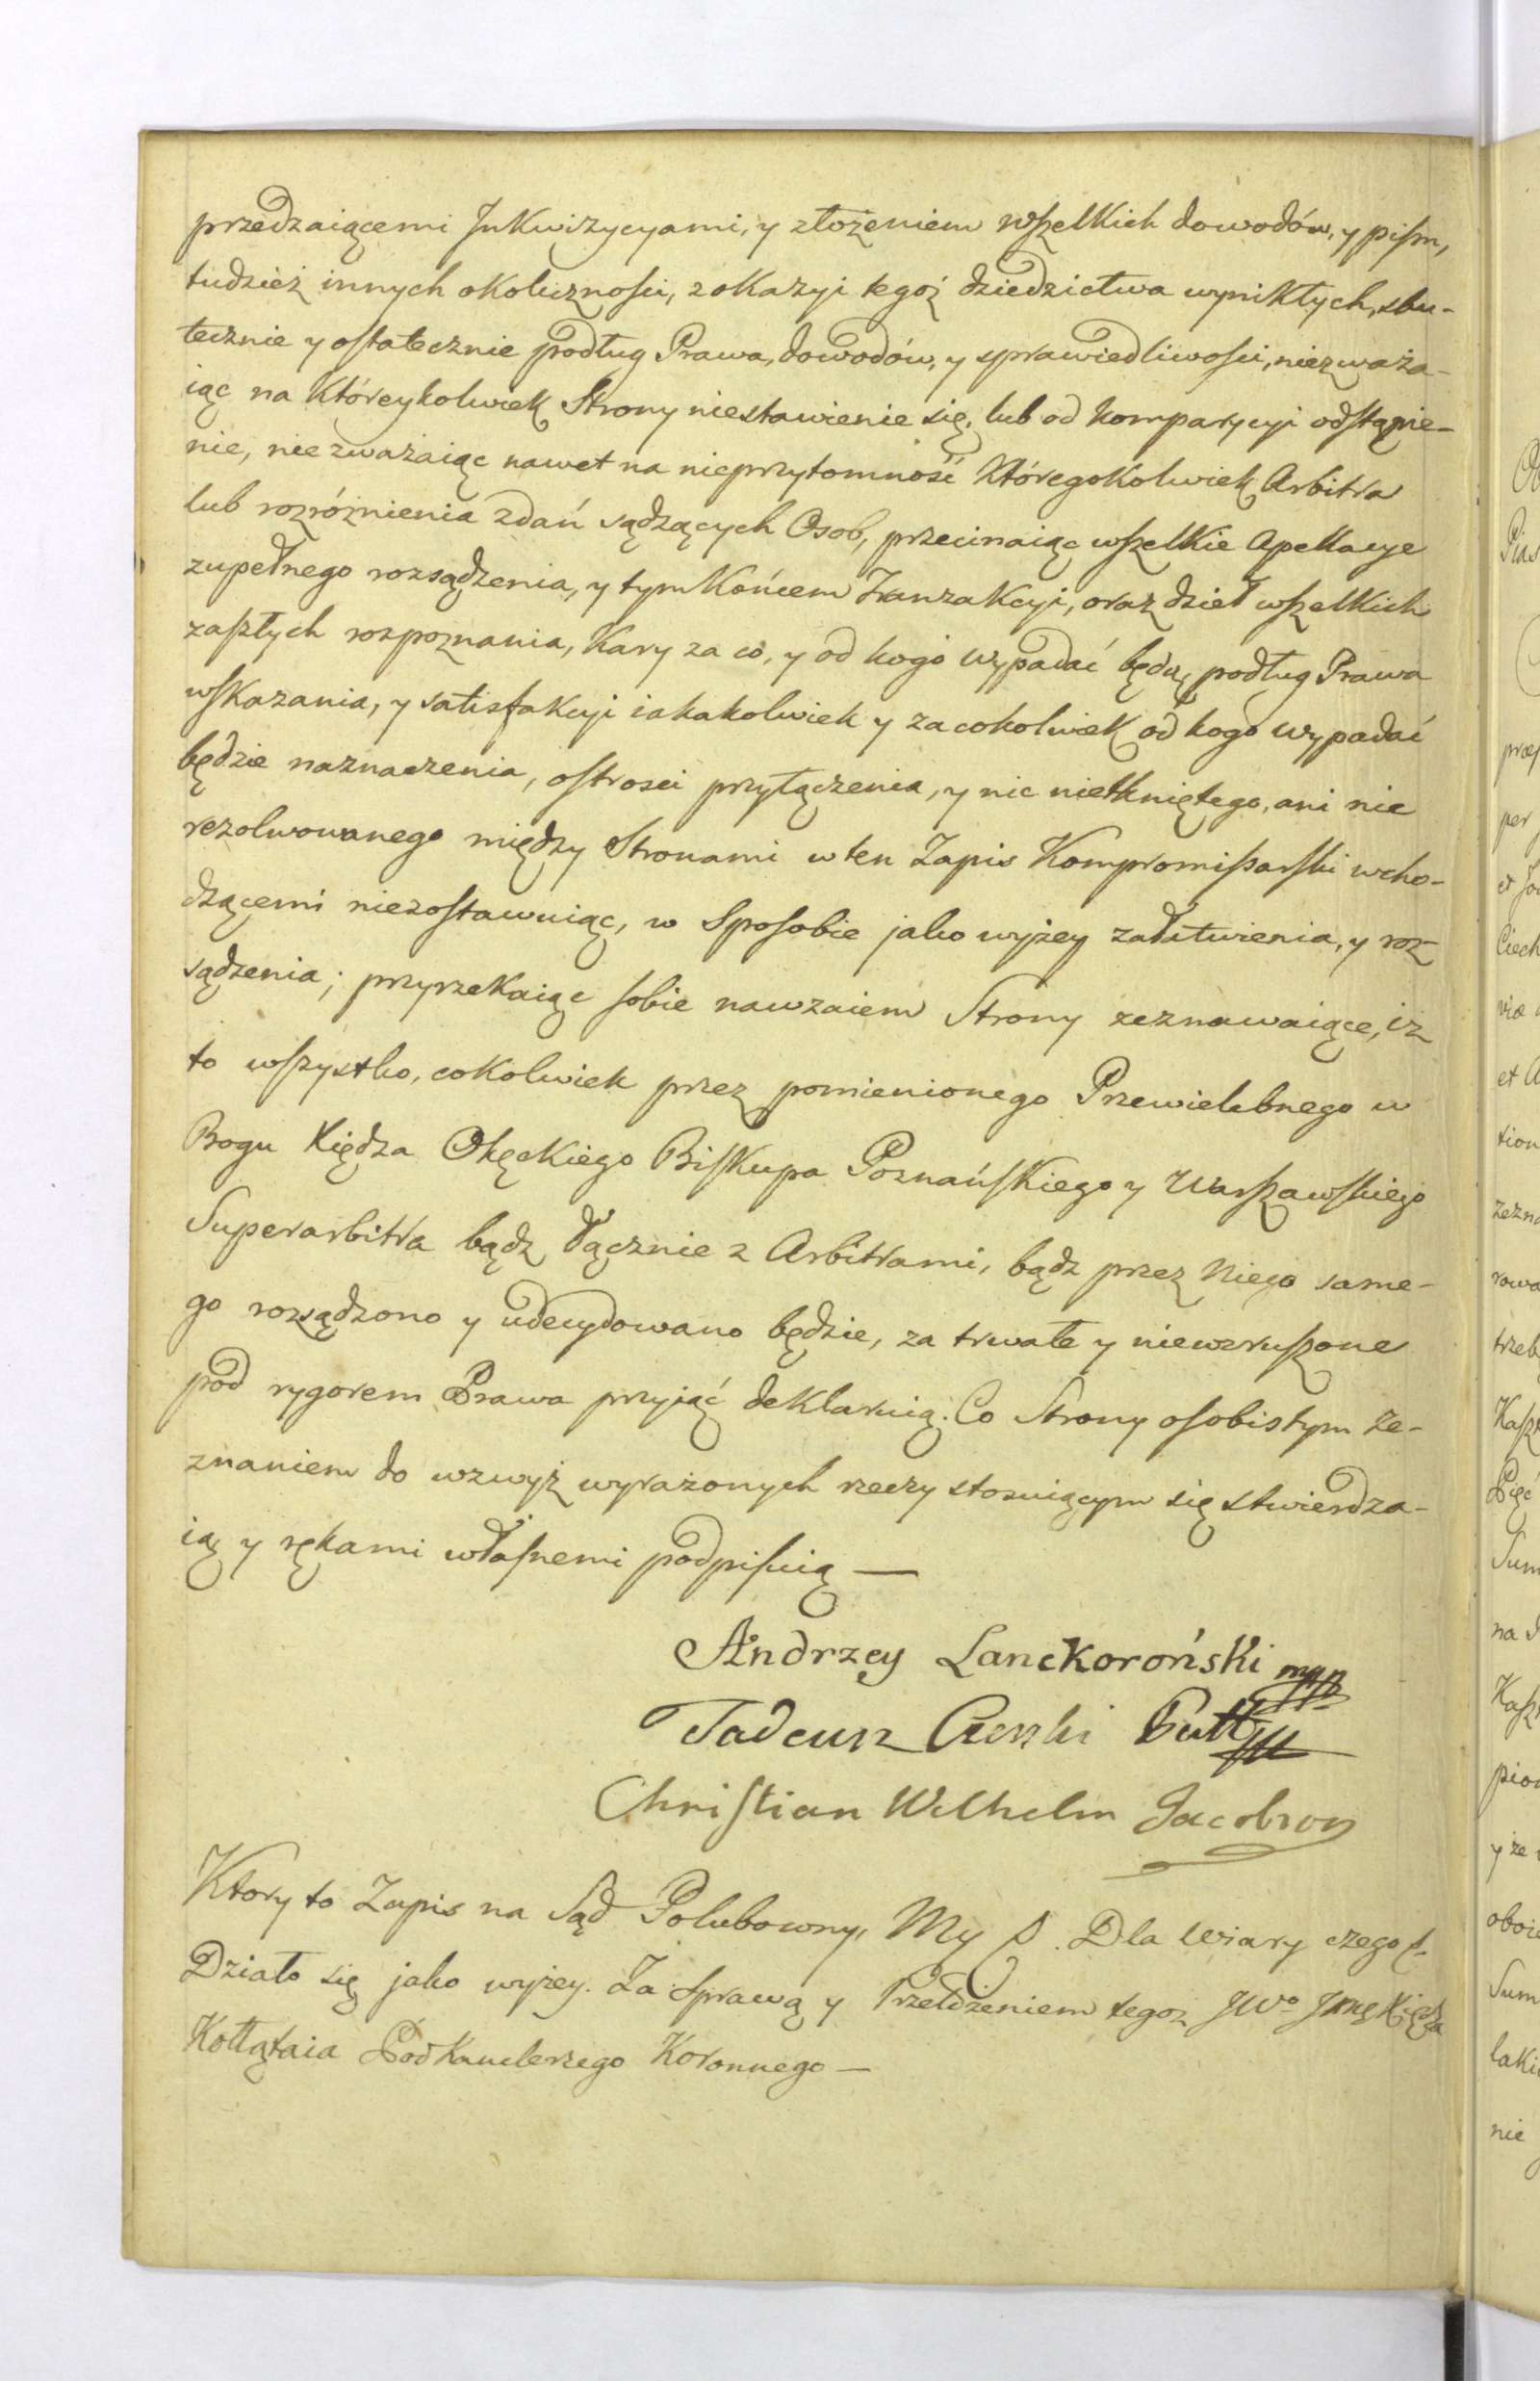 przedzaiącemi Jnkwizycyami, y złożeniem wſzelkich dowodów, y piſm,
tudzież innych okolicznoſci, z okazyi tegoż dziedzictwa wynikłych, sku-
tecznie y oſtatecznie podług Prawa, dowodów, y sprawiedliwoſci, niezważa-
iąc na któreykolwiek Strony niestawienie się, lub od komparycyi odſtąpie-
nie, nie zważaiąc nawet na nieprzytomność któregokolwiek Arbitra
lub rozróżnienia zdań sądzących Osob, przecinaiąc wſzelkie Apellacye
zupełnego rozsądzenia, y tym końcem Tranzakcyi, oraz dzieł wſzelkich
zaſzłych rozpoznania, Kary za co, y od kogo wypadać będą, podług Prawa
wſkazania, y satisfakcyi iakakolwiek y za cokolwiek od kogo wypadać
będzie naznaczenia, oſtrosci przyłączenia, y nic nietkniętego, ani nie
rezolwowanego między Stronami w ten Zapis Kompromiſsarſki wcho-
dzącemi niezoſtawuiąc, w Spoſobie jako wyżey załatwienia, y roz-
sądzenia; przyrzekaiąc ſobie nawzaiem Strony zeznawaiące, iz
to wſzystko, cokolwiek przez pomienionego Przewielebnego w
Bogu Xiędza Okęckiego Biſkupa Poznańſkiego y Warſzawſkiego
Superarbitra bądz łącznie z Arbitrami, bądz przez Niego same-
go rozsądzono y udecydowano będzie, za trwałe y niewzruſzone
pod rygorem Prawa przyjąć deklaruią. Co Strony oſobistym ze-
znaniem do wzwyż wyrażonych rzeczy stosuiącym się stwierdza-
ią y rękami właſnemi podpiſuią —
Andrzey Lanckoroński mpp
Tadeusz Czacki
Chriſtian Wilhelm Jacobson
Ktory to Zapis na Sąd Polubowny, My &. Dla Wiary czego &.
Działo się jako wyżey. Za Sprawą y Przełożeniem tegoz JWo Jmę Xiędza
Kołłątaia Podkanclerzego Koronnego —